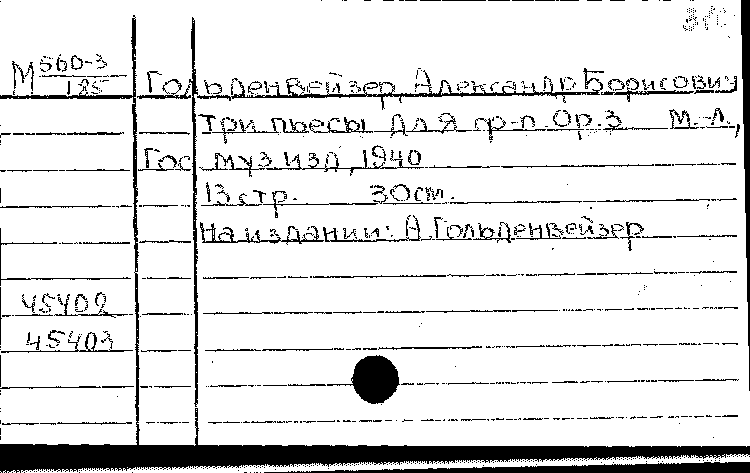 М 560-3
185
Гольденвейзер, Александр Борисович
Три пьесы для ф-п. Ор.3 М.-Л.,
Гос муз изд, 1940
13 стр. 30 см.
На издании: А. Гольденвейзер
45402
45403